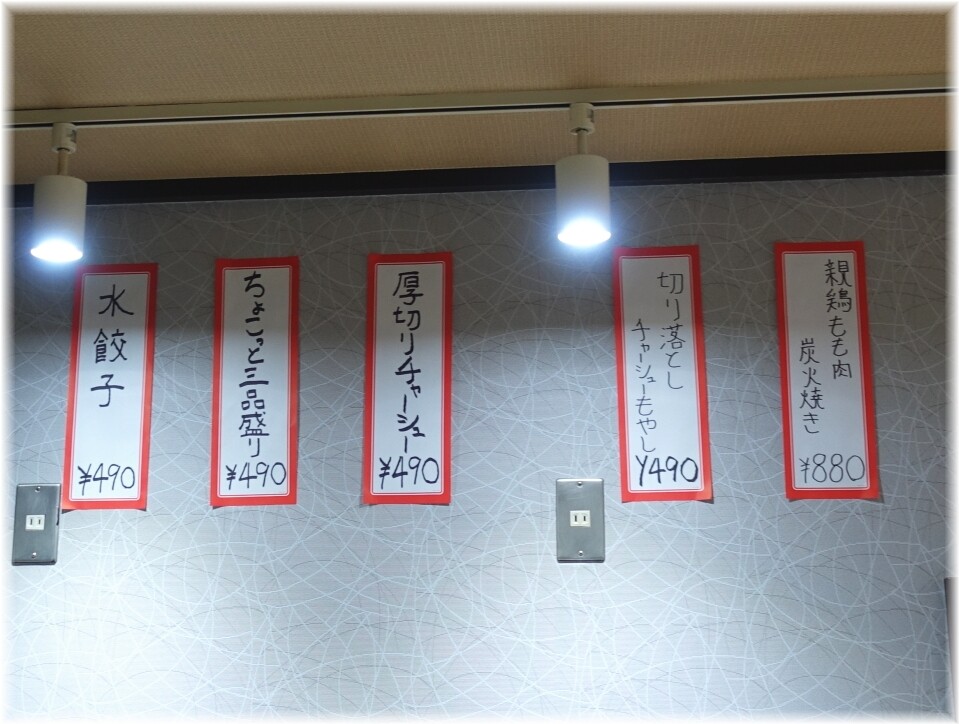 水餃子
¥490
ちょこっと三品盛り
¥490
厚切りチャーシュー
¥490
切り落とし
チャーシューもやし
Y490
親鶏もも肉
炭火焼き
¥880